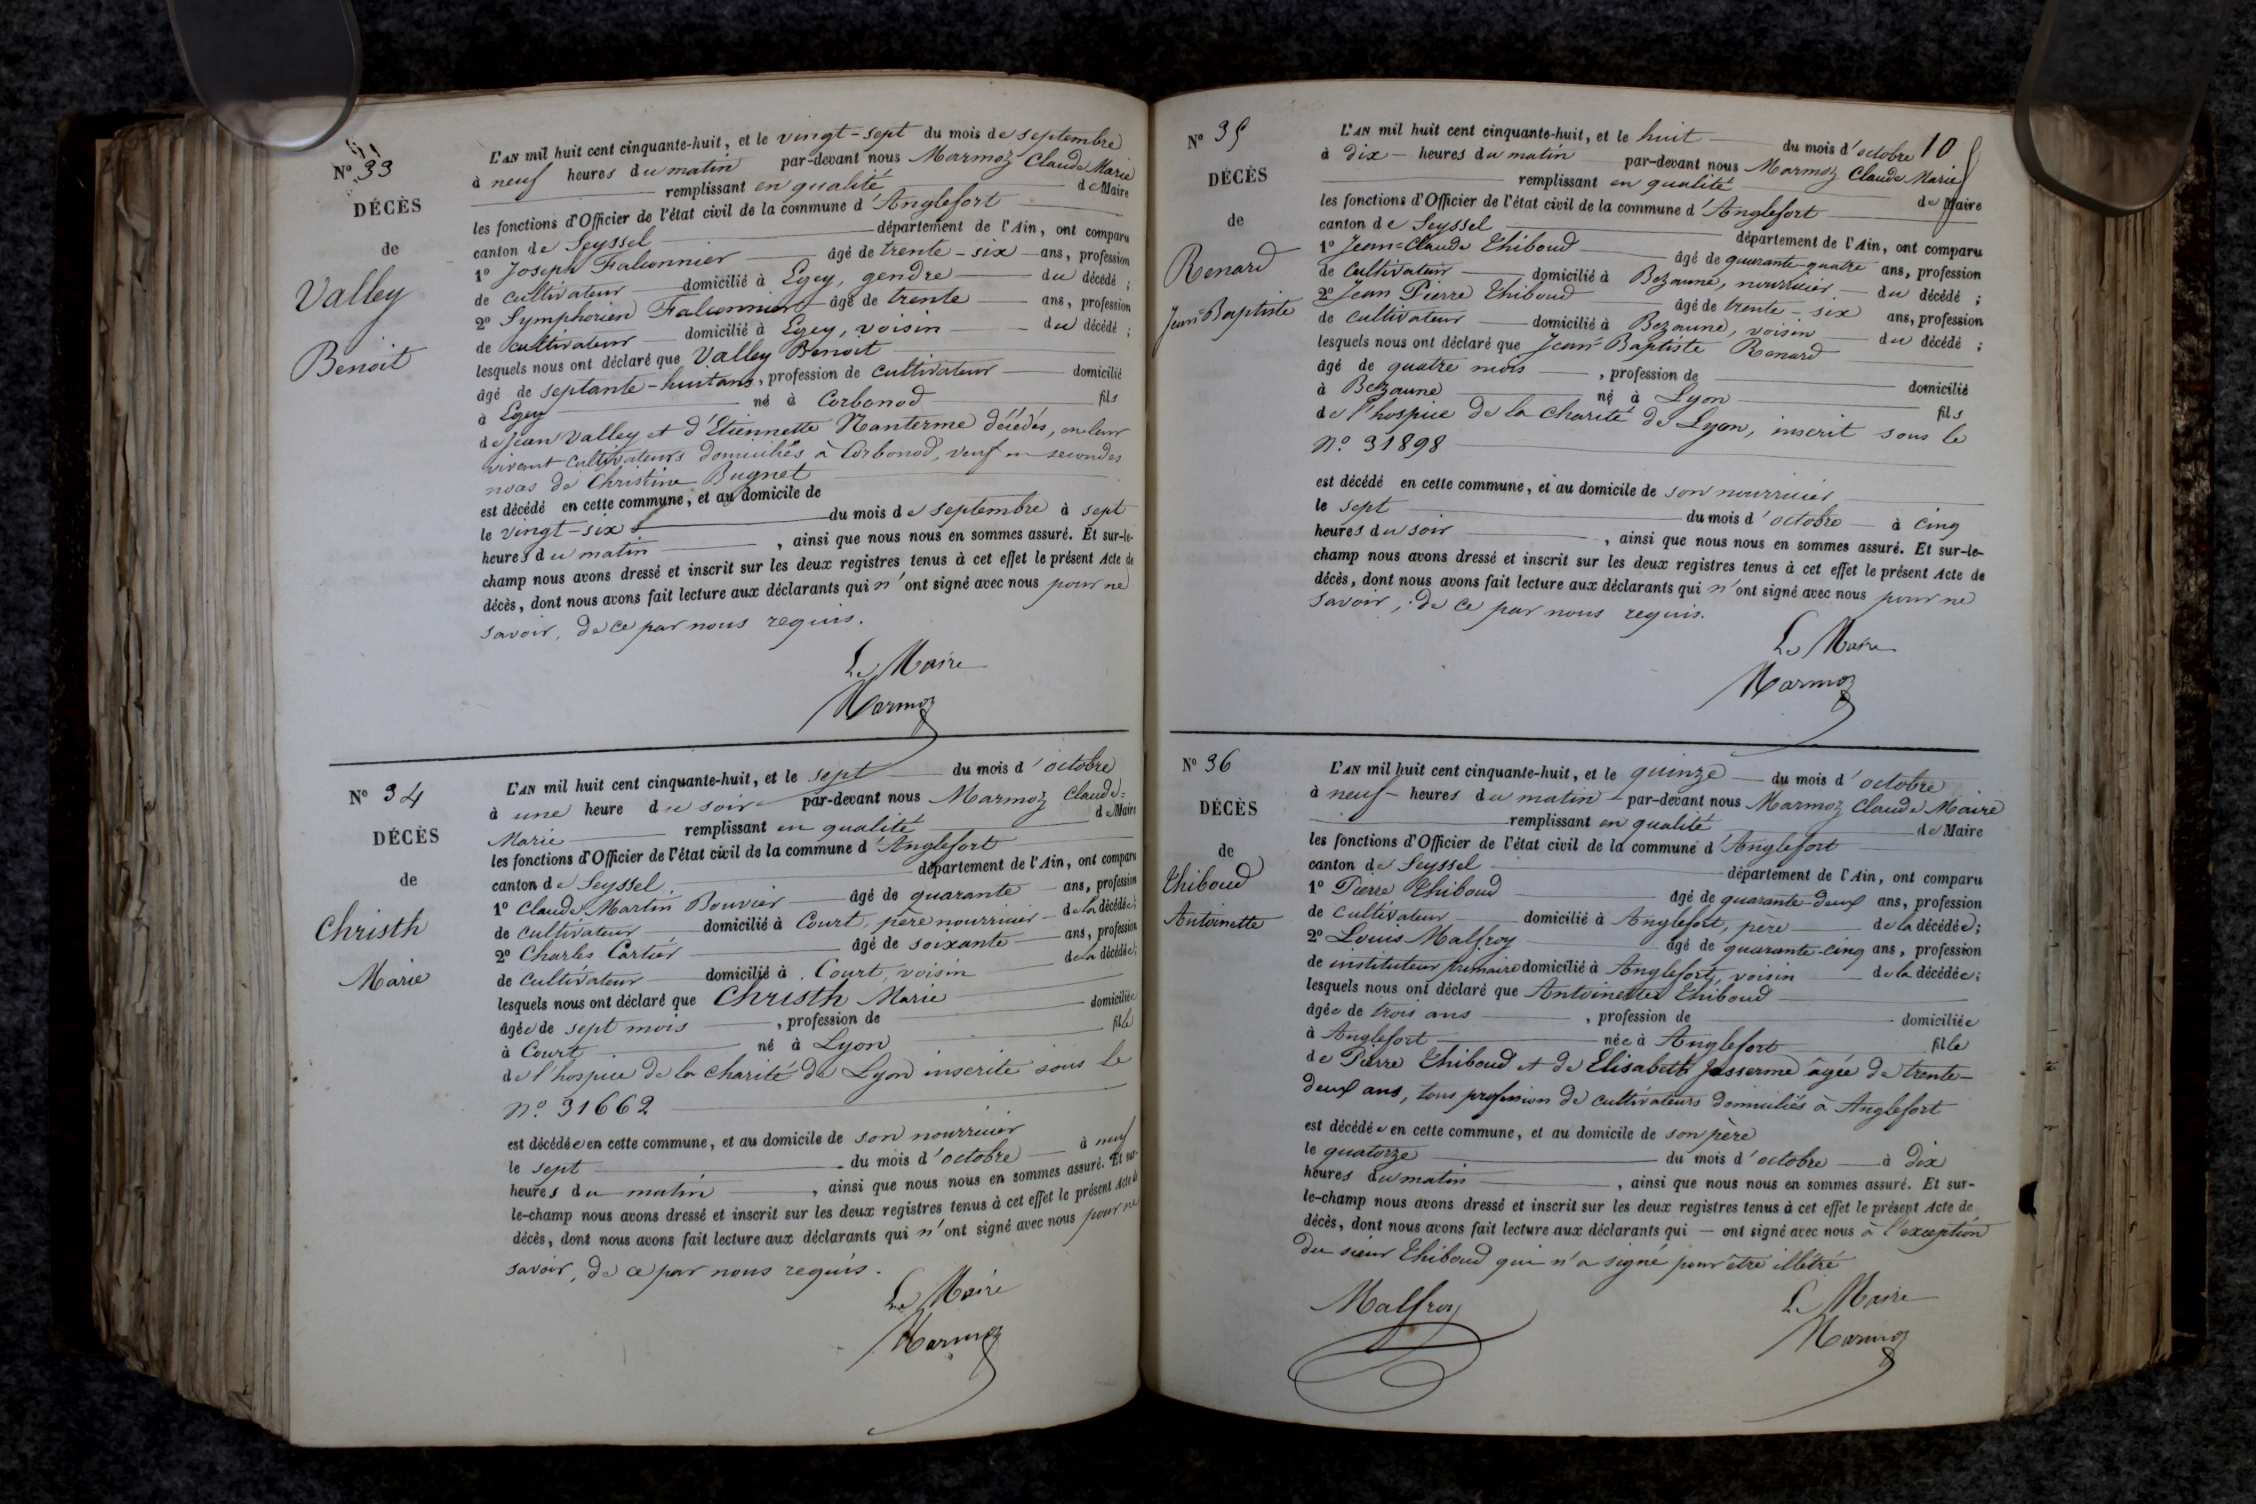 N° 33
DÉCÈS
de
Valley
Benoit
L'AN mil huit cent cinquante-huit, et le vingt-sept du mois de septembre
à neuf heures du matin par-devant nous Marmoz Claude Marie
remplissant en qualité de Maire
les fonctions d'Officier de l'état civil de la commune d'Anglefort
canton de Seyssel département de l'Ain, ont comparu
1° Joseph Falconnier âgé de trente-six ans, profession
de cultivateur domicilié à Ezey, gendre du décédé ;
2° Symphorien Falconnier âgé de trente ans, profession
de cultivateur domicilié à Ezey, voisin du décédé ;
lesquels nous ont déclaré que Valley Benoit
âgé de septante-huit ans, profession de cultivateur domicilié
à Ezey né à Corbonod fils
de Jean Valley et d'Etiennette Nanterme décédés, en leur
vivant cultivateurs domiciliés à Corbonod, veuf en secondes
noces de Christine Bugnet
est décédé en cette commune, et au domicile de
le vingt-six du mois de septembre à sept
heures du matin, ainsi que nous nous en sommes assuré. Et sur-le-
champ nous avons dressé et inscrit sur les deux registres tenus à cet effet le présent Acte de
décès, dont nous avons fait lecture aux déclarants qui n'ont signé avec nous pour ne
savoir, de ce par nous requis.
Le Maire
Marmoz
N° 34
DÉCÈS
de
Christh
Marie
L'AN mil huit cent cinquante-huit, et le sept du mois d'octobre
à une heure du soir par-devant nous Marmoz Claude=
Marie remplissant en qualité de Maire
les fonctions d'Officier de l'état civil de la commune d'Anglefort
canton de Seyssel département de l'Ain, ont comparu
1° Claude Martin Bouvier âgé de quarante ans, profession
de cultivateur, domicilié à Court, père nourricier de la décédée;
2° Charles Cartier âgé de soixante ans, profession
de cultivateur domicilié à Court, voisin de la décédée;
lesquels nous ont déclaré que Christh Marie
âgée de sept mois, profession de domiciliée
à Court né à Lyon fille
de l'hospice de la charité de Lyon inscrite sous le
n° 31662
est décédée en cette commune, et au domicile de son nourricier
le sept du mois d'octobre à neuf
heures du matin, ainsi que nous nous en sommes assuré. Et sur-
le-champ nous avons dressé et inscrit sur les deux registres tenus à cet effet le présent Acte de
décès, dont nous avons fait lecture aux déclarants qui n'ont signé avec nous pour ne
savoir, de ce par nous requis.
Le Maire
Marmoz
10
N° 35
DÉCÈS
de
Renard
Jean-Baptiste
L'AN mil huit cent cinquante-huit, et le huit du mois d'octobre
à dix heures du matin par-devant nous Marmoz Claude Marie
remplissant en qualité de Maire
les fonctions d'Officier de l'état civil de la commune d'Anglefort
canton de Seyssel département de l'Ain, ont comparu
1° Jean=Claude Thiboud âgé de quarante-quatre ans, profession
de cultivateur domicilié à Bezaune, nourricier du décédé ;
2° Jean Pierre Thiboud âgé de trente-six ans, profession
de cultivateur domicilié à Bezaune, voisin du décédé ;
lesquels nous ont déclaré que Jean-Baptiste Renard
âgé de quatre mois, profession de domicilié
à Bezaune né à Lyon fils
de l'hospice de la charité de Lyon, inscrit sous le
n° 31898
est décédé en cette commune, et au domicile de son nourricier
le sept du mois d'octobre à cinq
heures du soir, ainsi que nous nous en sommes assuré. Et sur-le-
champ nous avons dressé et inscrit sur les deux registres tenus à cet effet le présent Acte de
décès, dont nous avons fait lecture aux déclarants qui n'ont signé avec nous pour ne
savoir, de ce par nous requis.
Le Maire
Marmoz
N° 36
DÉCÈS
de
Thiboud
Antoinette
L'AN mil huit cent cinquante-huit, et le quinze du mois d'octobre
à neuf heures du matin par-devant nous Marmoz Claude Maire
remplissant en qualité de Maire
les fonctions d'Officier de l'état civil de la commune d'Anglefort
canton de Seyssel département de l'Ain, ont comparu
1° Pierre Thiboud âgé de quarante-deux ans, profession
de cultivateur domicilié à Anglefort, père de la décédée;
2° Louis Malfroy âgé de quarante-cinq ans, profession
de instituteur primaire domicilié à Anglefort, voisin de la décédée;
lesquels nous ont déclaré que Antoinette Thiboud
âgée de trois ans, profession de domiciliée
à Anglefort née à Anglefort fille
de Pierre Thiboud et de Elisabeth Josserme âgée de trente-
deux ans, tous profession de cultivateurs domiciliés à Anglefort
est décédée en cette commune, et au domicile de son père
le quatorze du mois d'octobre à dix
heures du matin, ainsi que nous nous en sommes assuré. Et sur-
le-champ nous avons dressé et inscrit sur les deux registres tenus à cet effet le présent Acte de
décès, dont nous avons fait lecture aux déclarants qui — ont signé avec nous à l'exception
du sieur Thiboud qui n'a signé pour être illétré
Malfroy
Le Maire
Marmoz